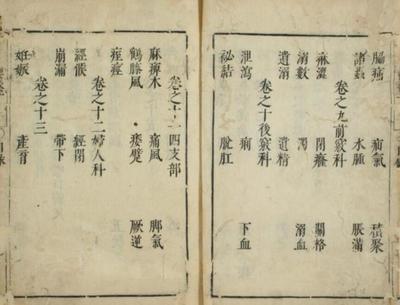 腸痛 疝氣 積聚
諸蟲 水腫 脹滿
卷之九前竅科
淋澀 閉癃 關格
溺數 濁 溺血
遺溺 遺精
卷之十後竅科
泄瀉 痢 下血
祕結 脫肛
卷之十一四支部
麻痺木 痛風 脚氣
鶴膝風 痿躄 厥逆
痙痓
卷之十二婦人科
經候 經閉
崩漏 帶下
卷之十三
妊娠 產育